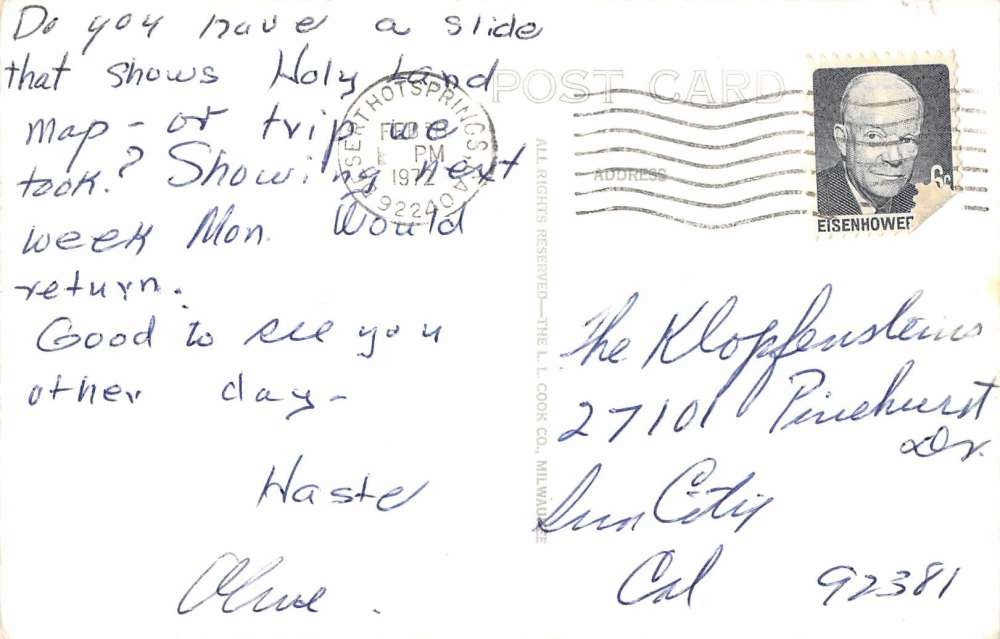 Do you have a slide
that shows Holy Land
map - or trip we
took? Showing next
week Mon. Would
return.
Good to see you
other day -
Haste
Olive.
POST CARD
DESERT HOT SPRINGS
FEB
PM
1972
92240
ADDRESS
6c
EISENHOWER
ALL RIGHTS RESERVED—THE L. L. COOK CO., MILWAUKEE
The Klopfensteins
27101 Pinehurst
Dr.
Sun City
Cal 92381